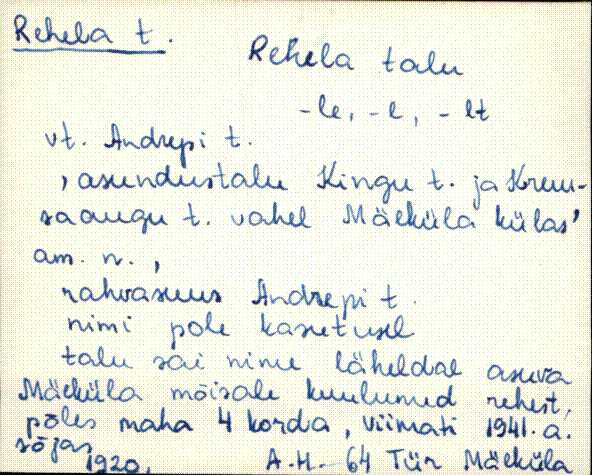 Rehela t.
Rehela talu
-le, -l, -lt
vt. Andrepi t.
, asundustalu Kingu t. ja Kruu-
saaugu t. vahel Mäeküla külas'
am. n.,
rahvasuus Andrepi t.
nimi pole kasutusel
talu sai nime läheldal asuva
Mäeküla mõisale kuulunud rehest,
põles maha 4 korda, viimati 1941. a.
sõjas
1920. A.H. - 64 Tür Mäeküla